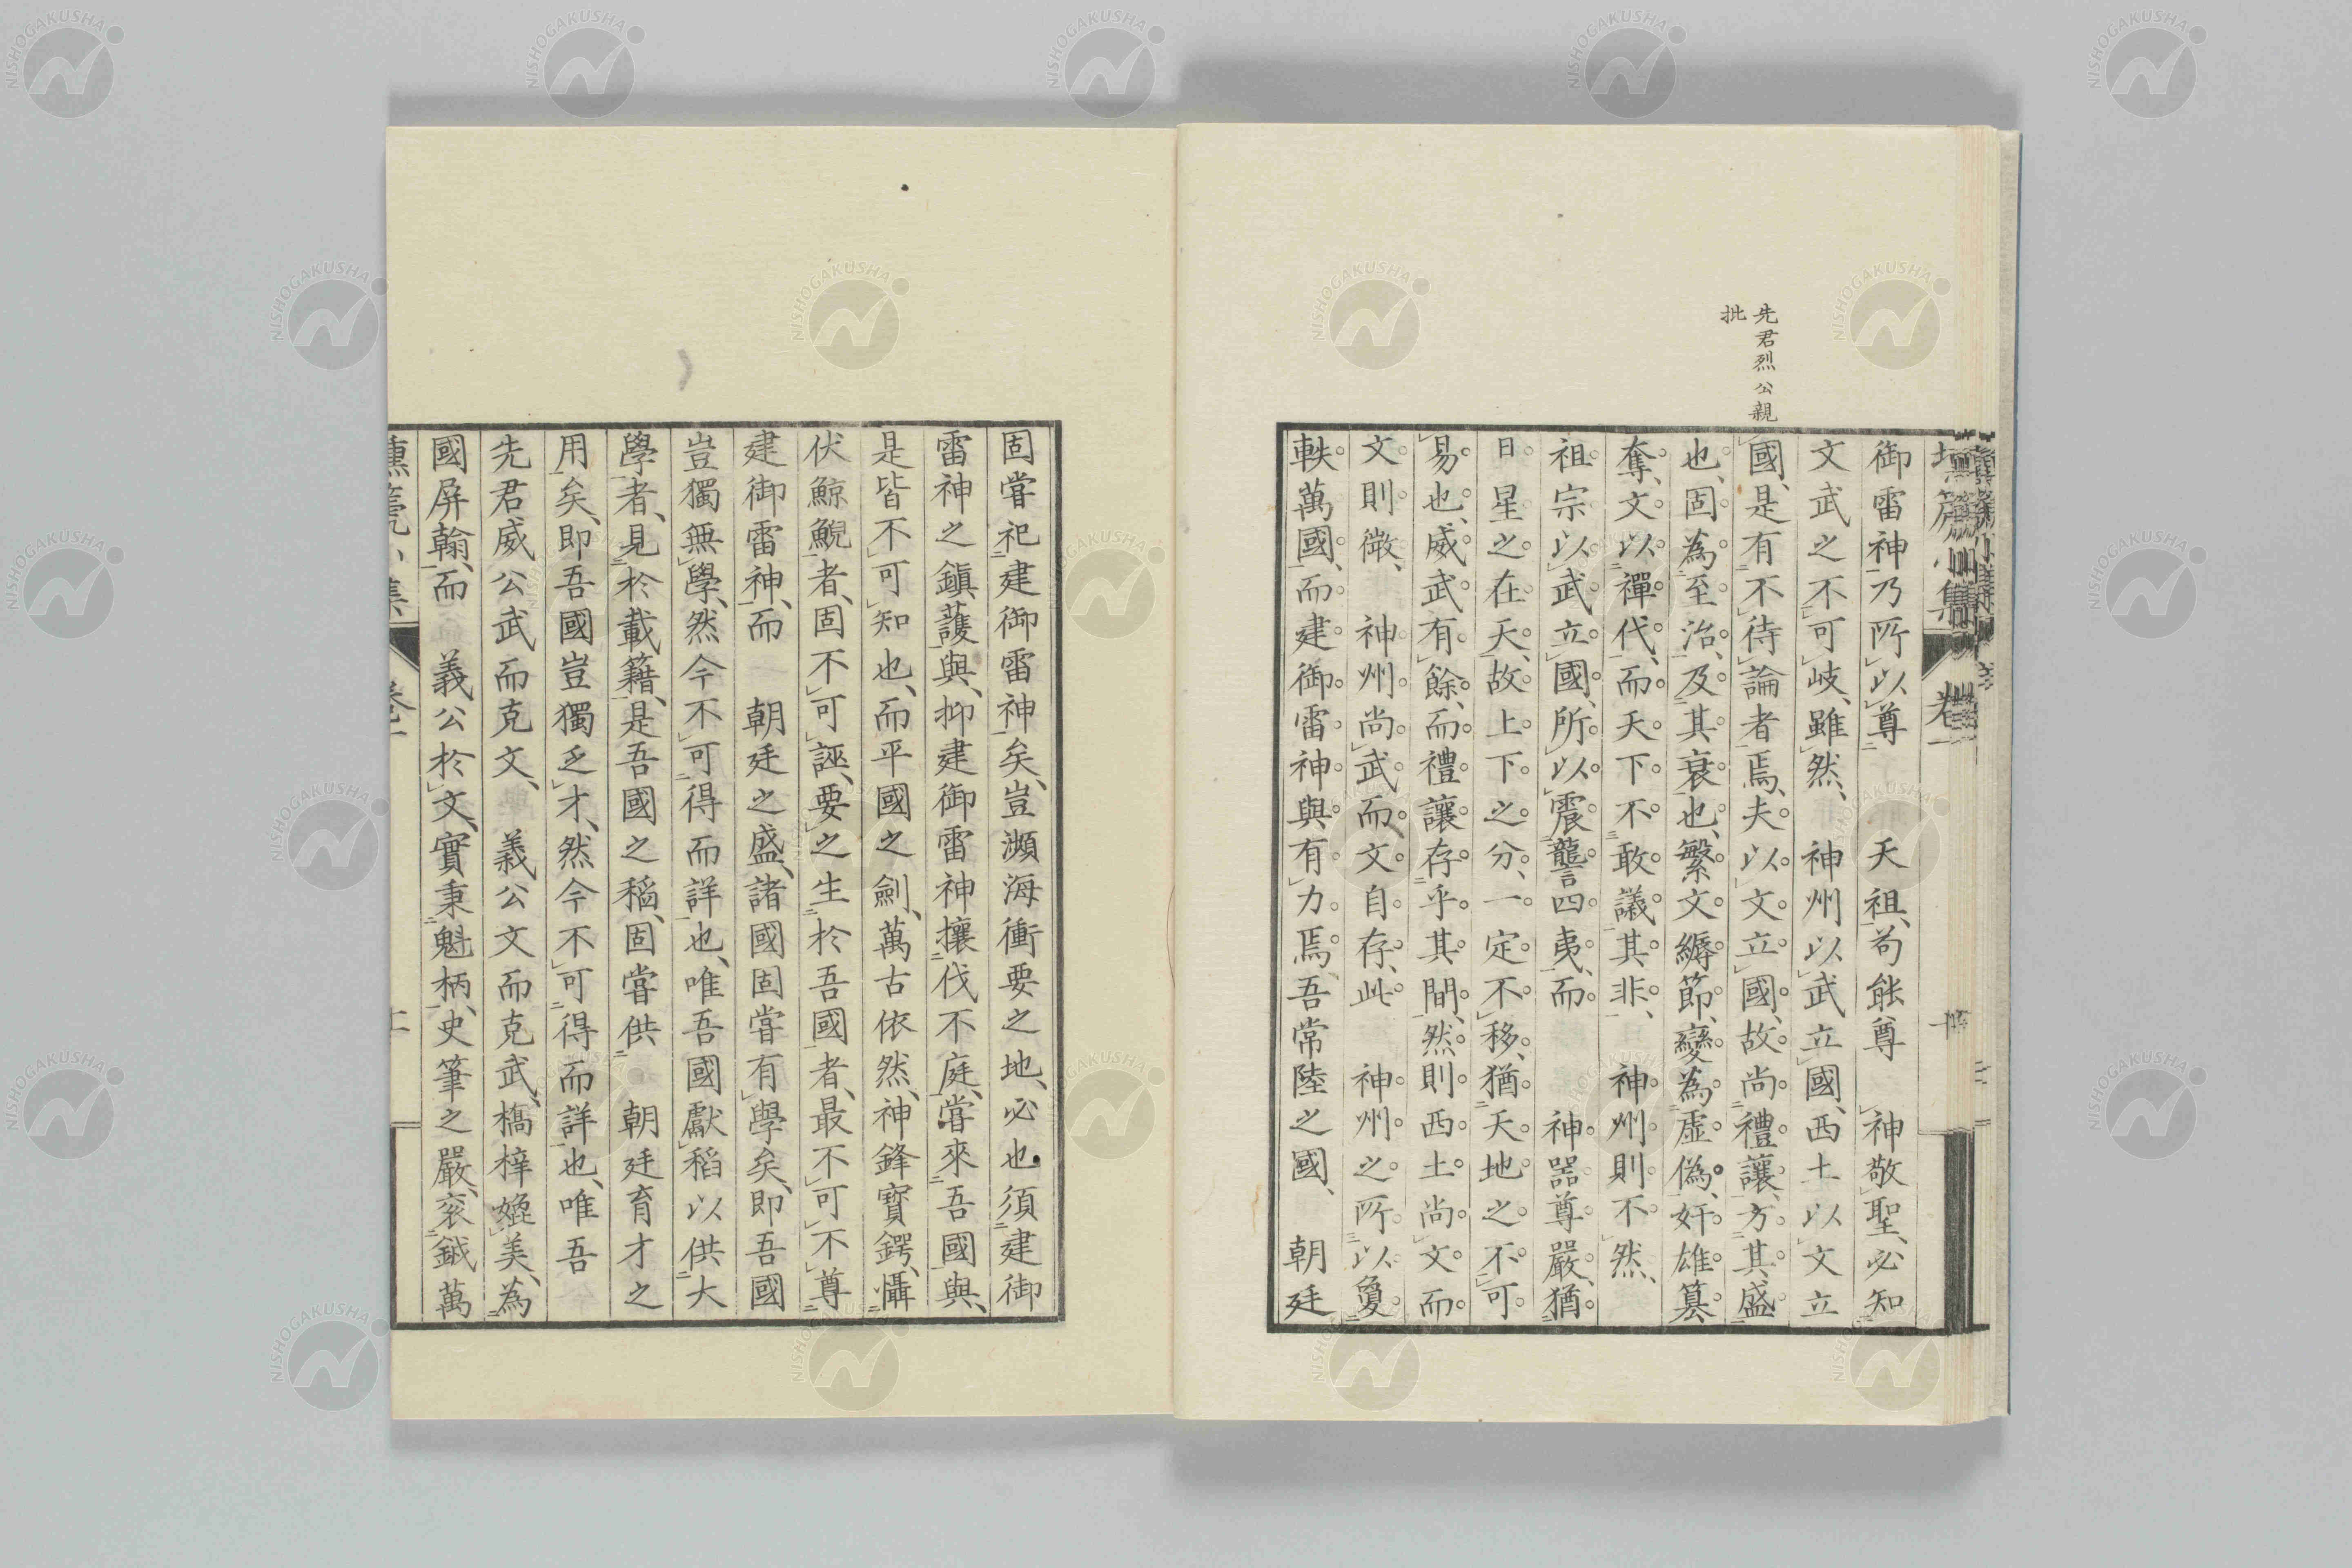 先君烈公親
批
御雷神乃所以尊　天祖、苟能尊　神敬聖、必知
文武之不可岐、雖然、　神州以武立國、西土以文立
國、是有不待論者焉、夫以文立國、故尚禮讓、方其盛
也、固為至治、及其衰也、繁文縟節、變為虛偽、奸雄簒
奪、文以禪代、而天下不敢議其非、　神州則不然、
祖宗以武立國、所以震讋四夷、而　神器尊嚴、猶
日星之在天、故上下之分、一定不移、猶天地之不可
易也、威武有餘、而禮讓存乎其間、然則西土尚文而
文則微、　神州尚武而文自存、此　神州之所以敻
軼萬國、而建御雷神與有力焉、吾常陸之國、　朝廷
固嘗祀建御雷神矣、豈瀕海衝要之地、必也須建御
雷神之鎮護與、抑建御雷神攘伐不庭、嘗來吾國與、
是皆不可知也、而平國之劍、萬古依然、神鋒寶鍔、懾
伏鯨鯢者、固不可誣、要之生於吾國者、最不可不尊
建御雷神、而　朝廷之盛、諸國固嘗有學矣、即吾國
豈獨無學、然今不可得而詳也、唯吾國獻稻以供大
學者、見於載籍、是吾國之稻、固嘗供　朝廷育才之
用矣、即吾國豈獨乏才、然今不可得而詳也、唯吾
先君威公武而克文、　義公文而克武、橋梓媲美、為
國屏翰、而　義公於文、實秉魁柄、史筆之嚴、袞鉞萬
NISHOGAKUSHA